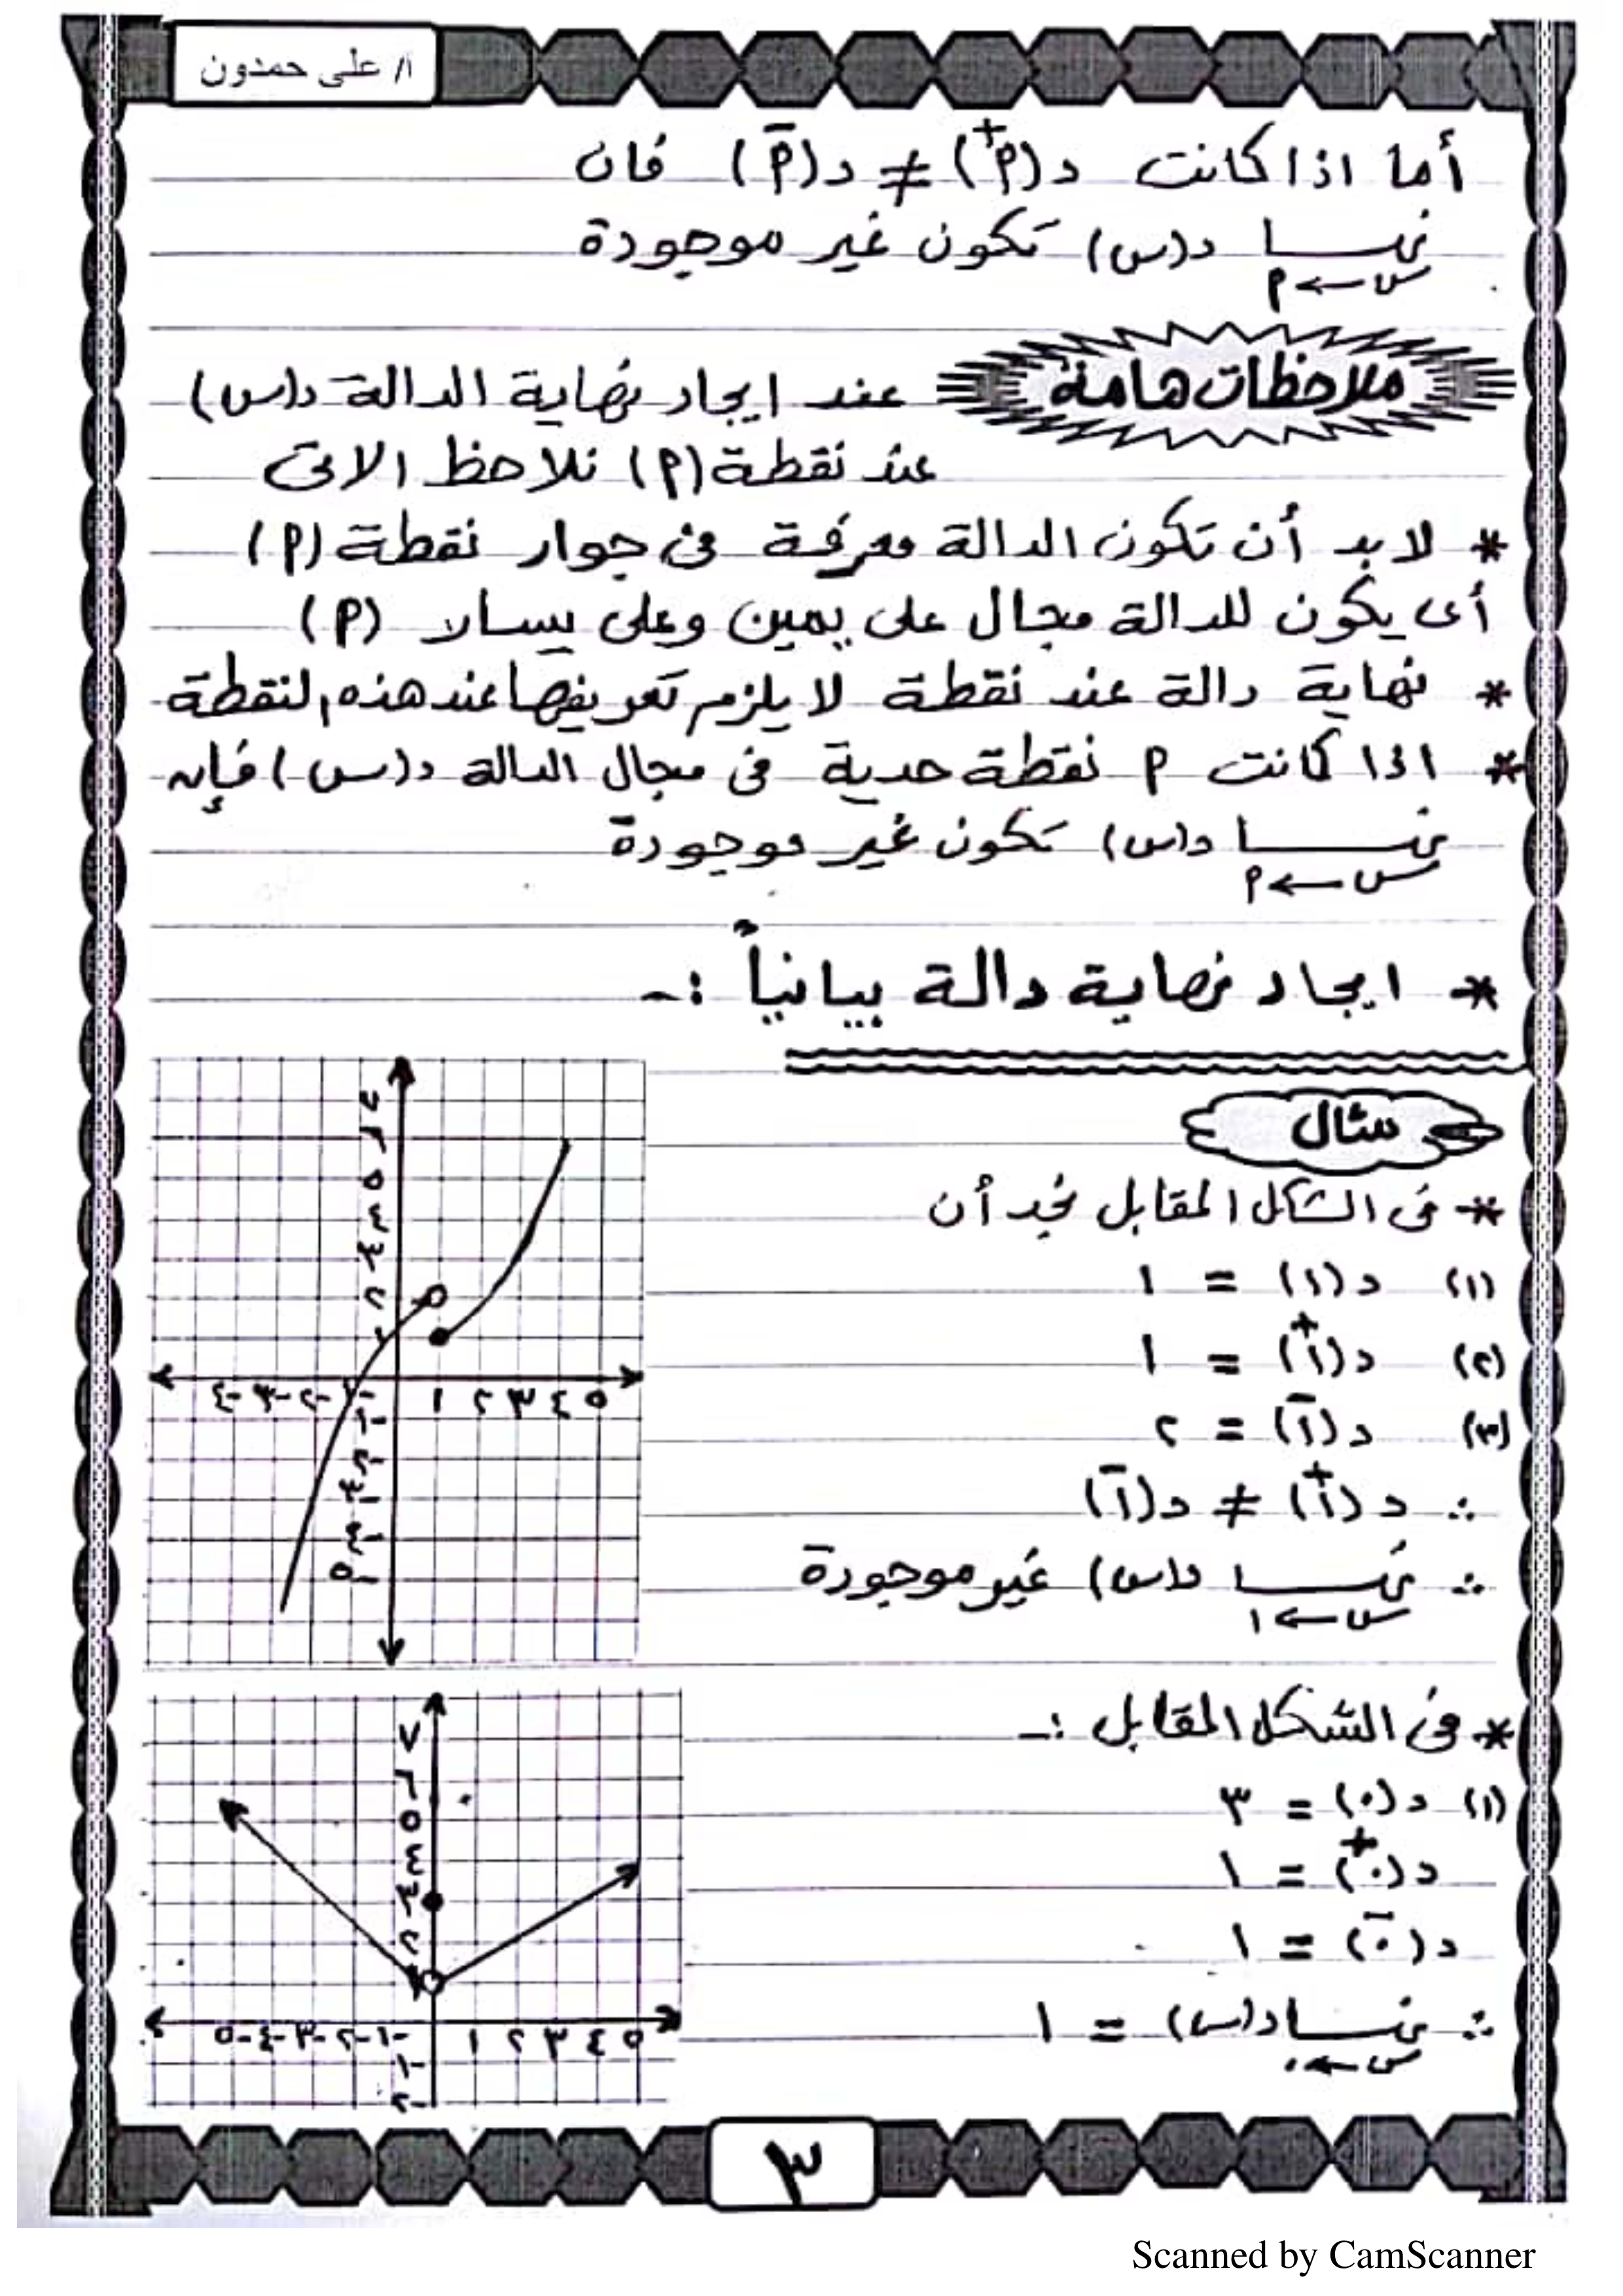 أ/ على حمدون
أما اذا كانت د(أ⁺) ≠ د(أ⁻) فان
نهــــا د(س) تكون غير موجودة
س←أ
ملاحظات هامة
عند ايجاد نهاية الدالة د(س)
عند نقطة (أ) نلاحظ الاتى
* لابد أن تكون الدالة معرفة فى جوار نقطة (أ)
أى يكون للدالة مجال على يمين وعلى يسار (أ)
* نهاية دالة عند نقطة لا يلزم تعريفها عند هذه النقطة
* اذا كانت أ نقطة حدية فى مجال الدالة د(س) فإنه
نهــــا د(س) تكون غير موجودة
س←أ
* ايجاد نهاية دالة بيانياً :-
مثال
* فى الشكل المقابل نجد أن
(١) د(١) = ١
(٢) د(١⁺) = ١
(٣) د(١⁻) = ٢
∴ د(١⁺) ≠ د(١⁻)
∴ نهــــا د(س) غير موجودة
س←١
٧
٦
٥
٤
٣
٢
١
-٤ -٣ -٢ -١ ١ ٢ ٣ ٤ ٥
-١
-٢
-٣
-٤
-٥
* فى الشكل المقابل :-
(١) د(٠) = ٣
د(٠⁺) = ١
د(٠⁻) = ١
∴ نهــــا د(س) = ١
س←٠
٧
٦
٥
٤
٣
٢
١
-٥ -٤ -٣ -٢ -١ ١ ٢ ٣ ٤ ٥
-١
-٢
٣
Scanned by CamScanner